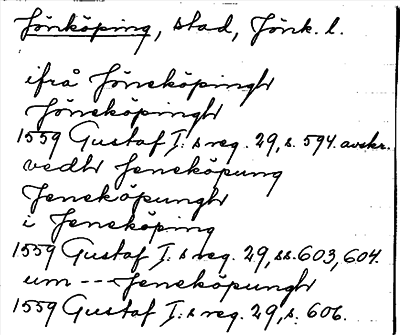 Jönköping, stad, Jönk. l.
ifrå Jöneköpingh
Jöneköpingh
1559 Gustaf I:s reg. 29, s. 594. avskr.
vedh Jeneköpung
Jeneköpungh
i Jeneköping
1559 Gustaf I:s reg. 29, ss. 603, 604.
um --- Jeneköpungh
1559 Gustaf I:s reg. 29, s. 606.